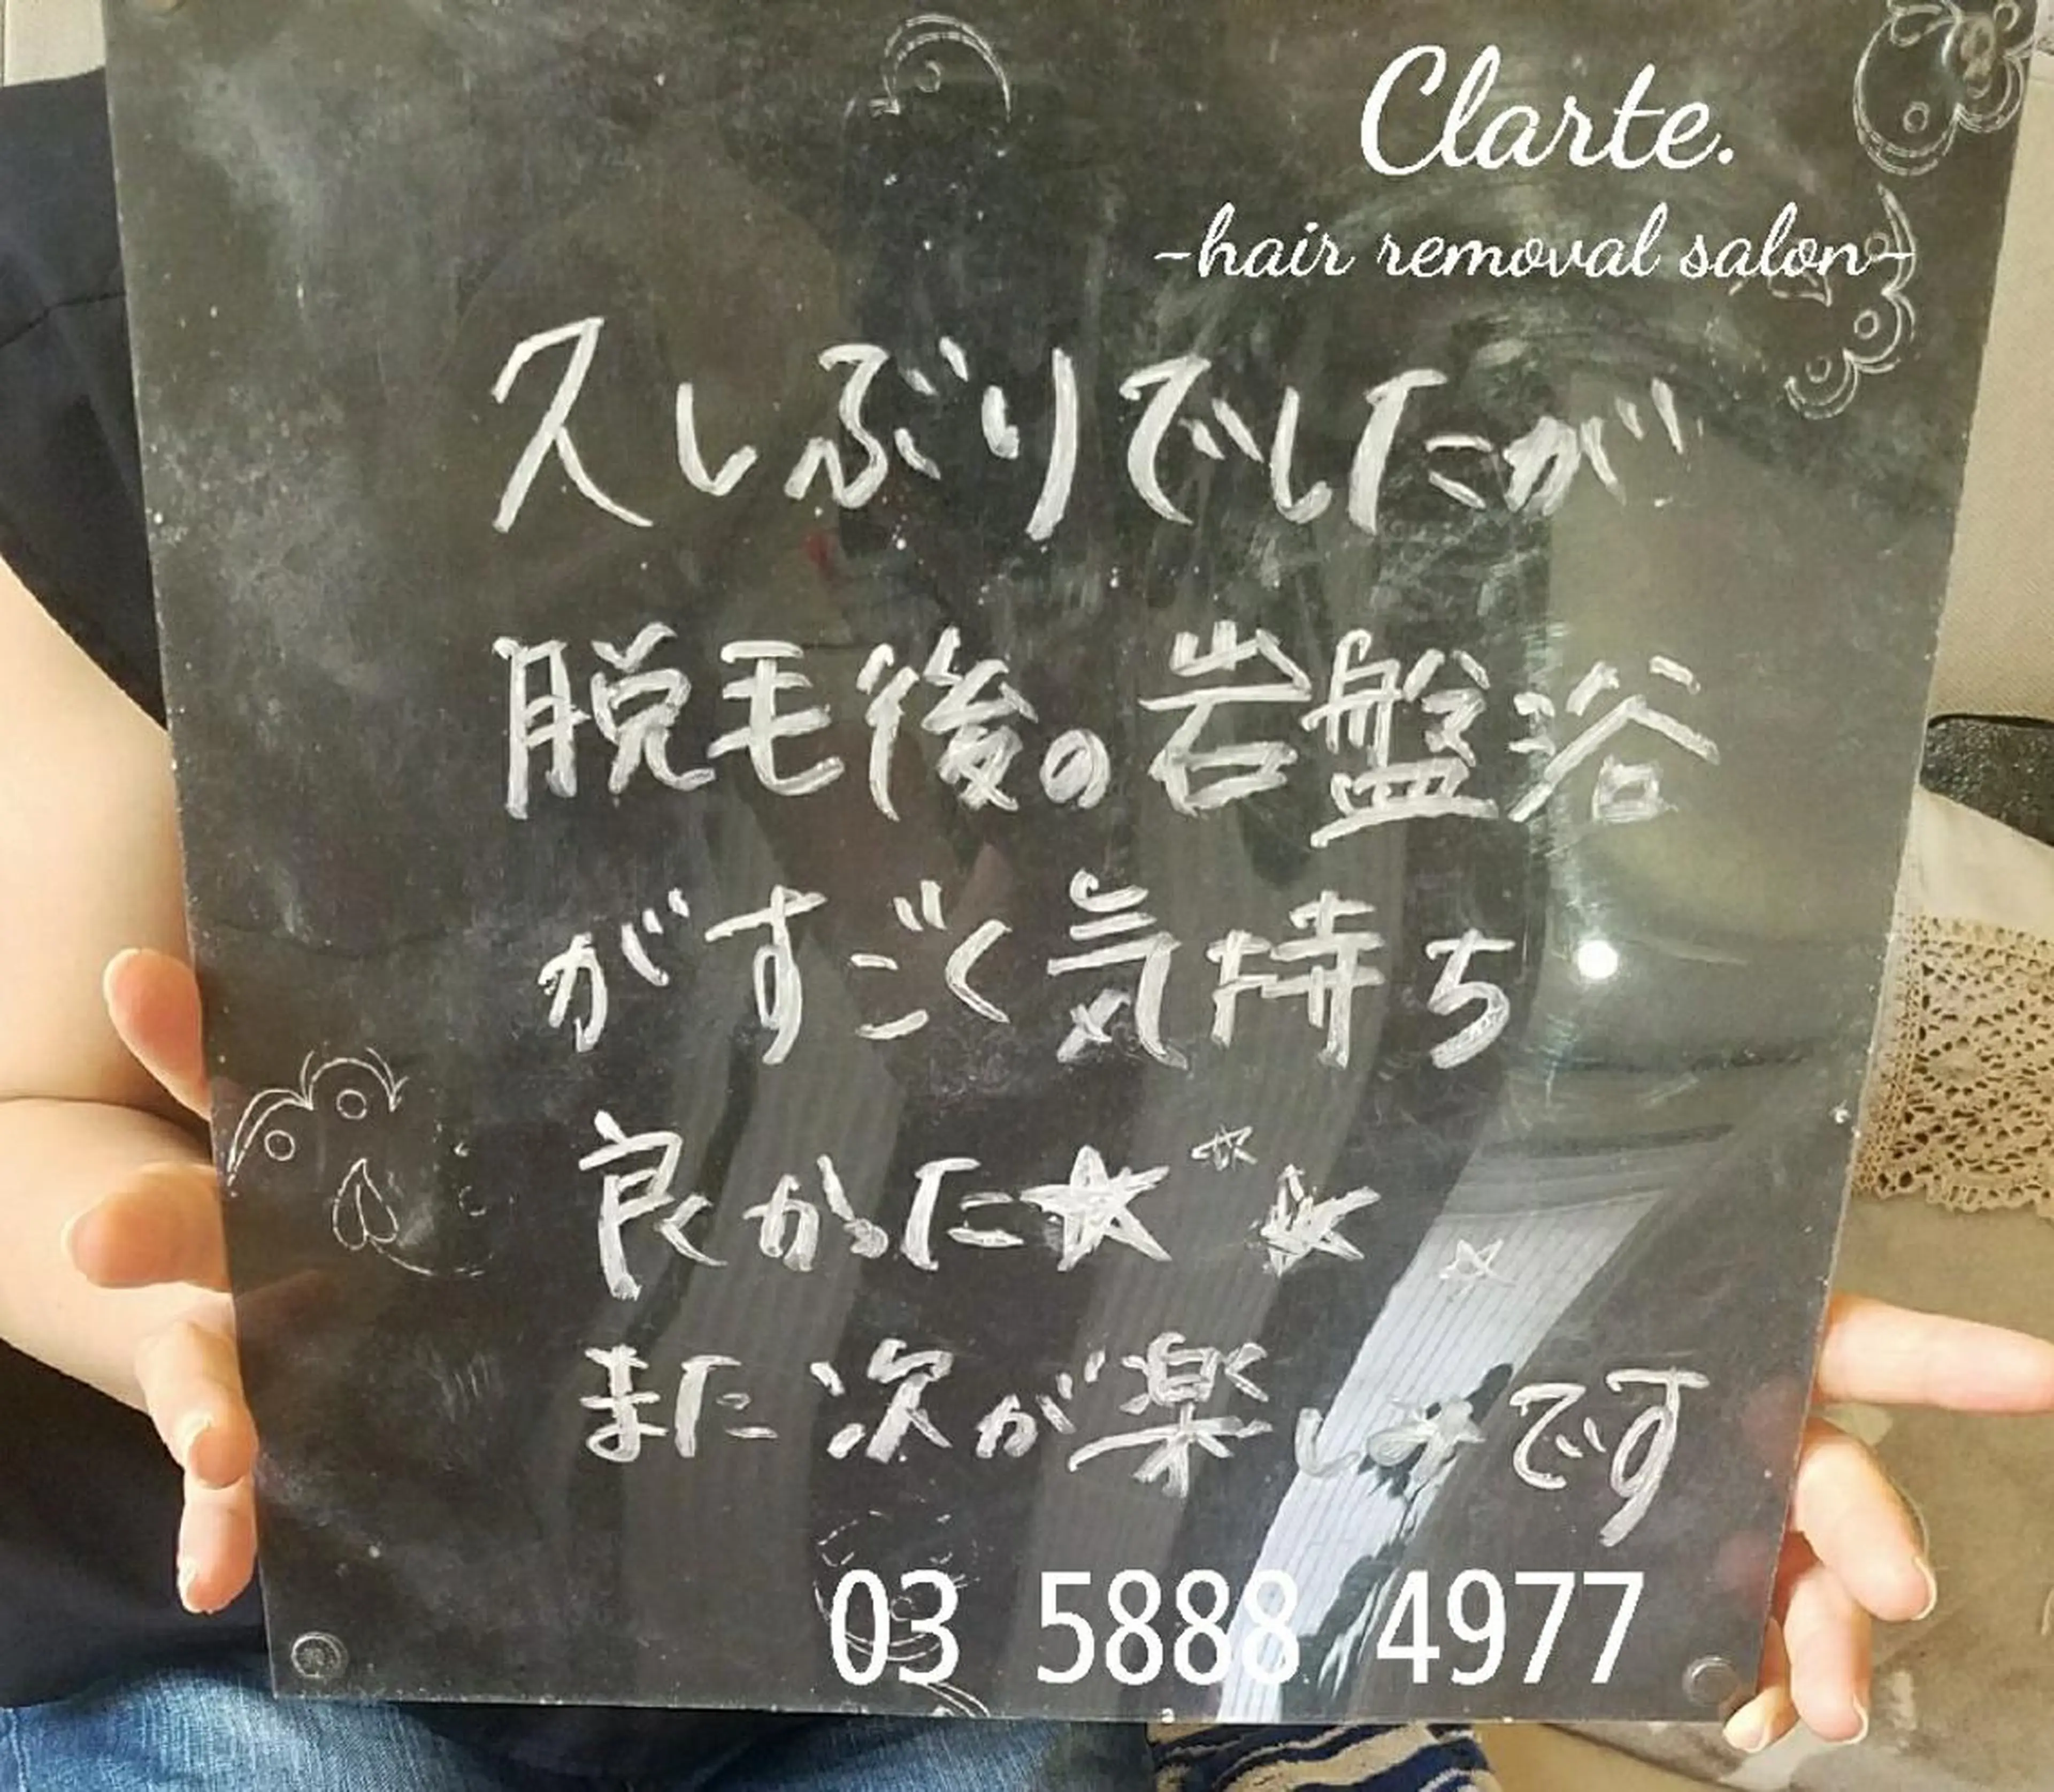 Clarte.
-hair removal salon-
久しぶりでしたが
脱毛後の岩盤浴
がすごく気持ち
良かった★☆★☆
また次が楽しみです
03 5888 4977